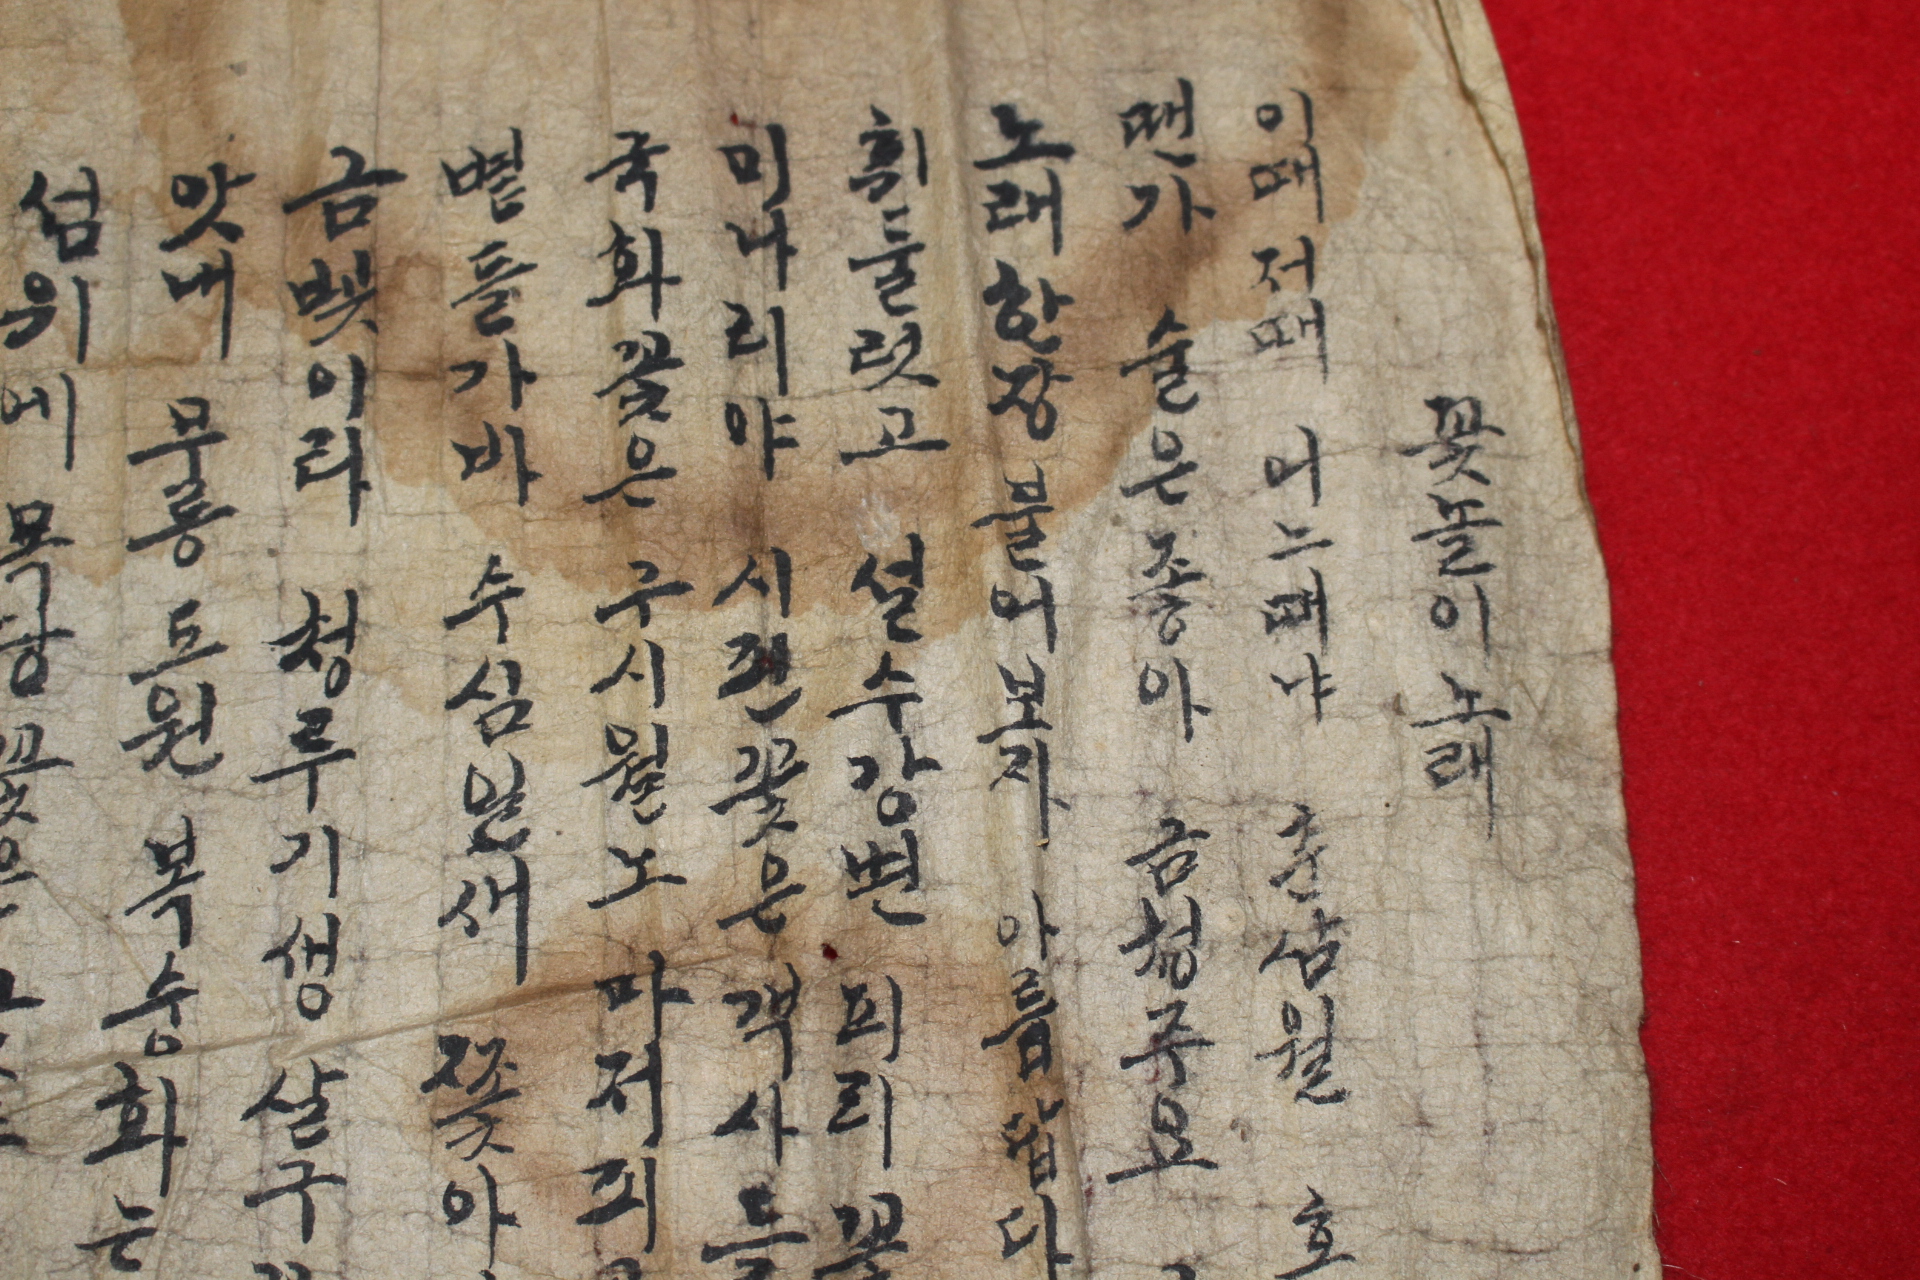 꽃놀이 노래
이때 저때 어느때냐 춘삼월 호
땐가 술은 좋아 금청주요
노래 한장 불어보자 아름답다
휘둘럿고 설수강변 피리 꽃
미나리야 시괸 꽃은 객사들
국화꽃은 구시월 노 마저 피
볃들가바 수심일새 꽃아
금빛이라 청루기생 살구
앗내 무릉도원 복숭화는
섬위에 목단꽃은